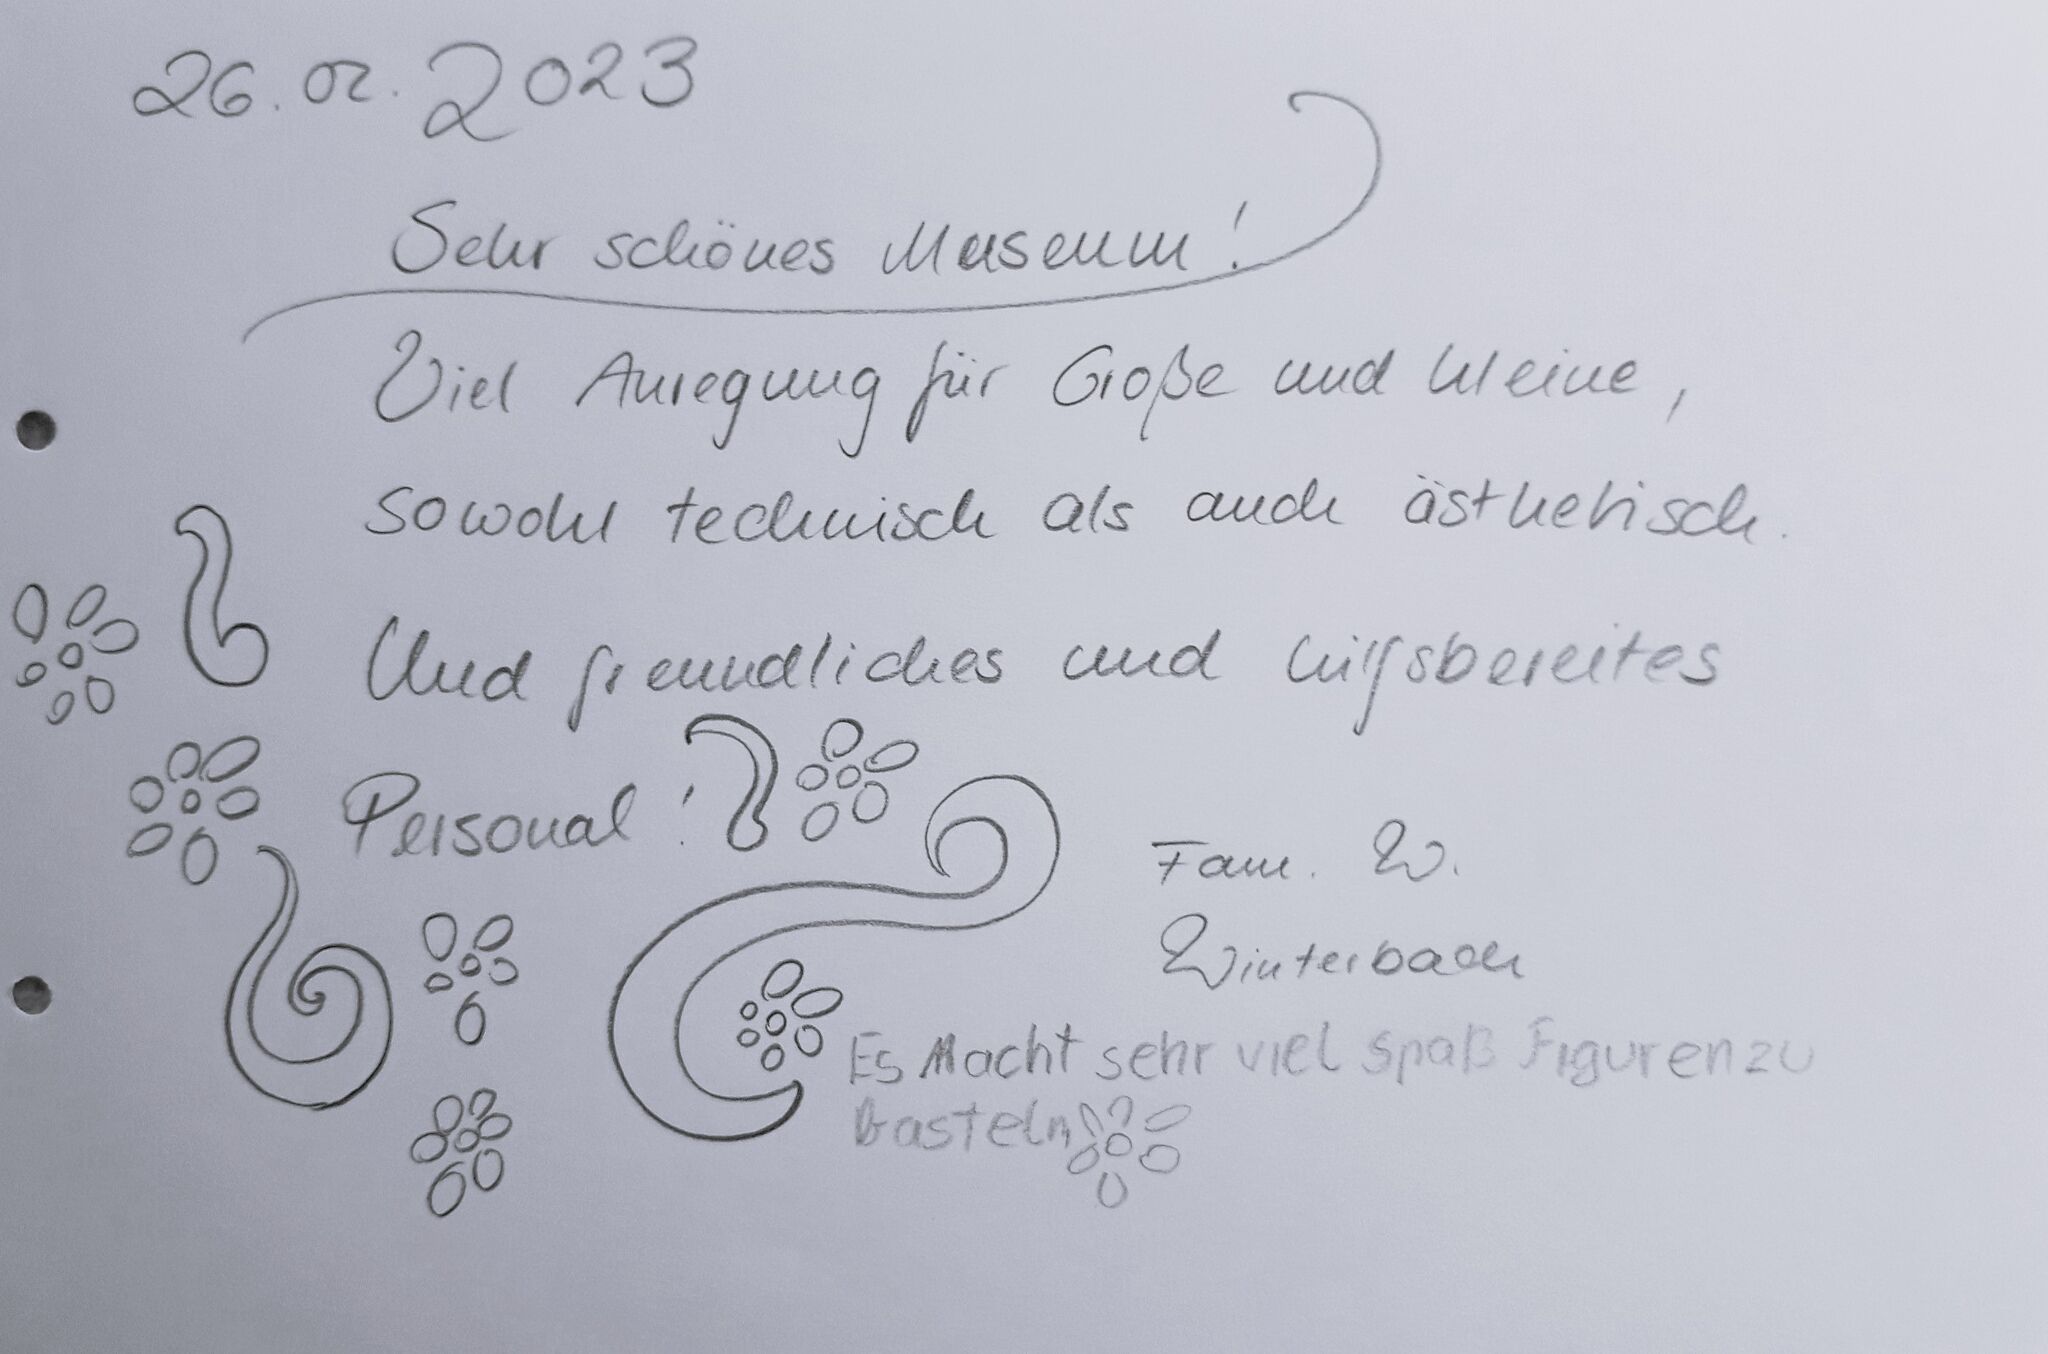 26.02.2023
Sehr schönes Museum!
Viel Anregung für Große und kleine,
sowohl technisch als auch ästhetisch.
Und freundliches und hilfsbereites
Personal!
Fam. W.
Winterbach
Es Macht sehr viel spaß Figuren zu
basteln